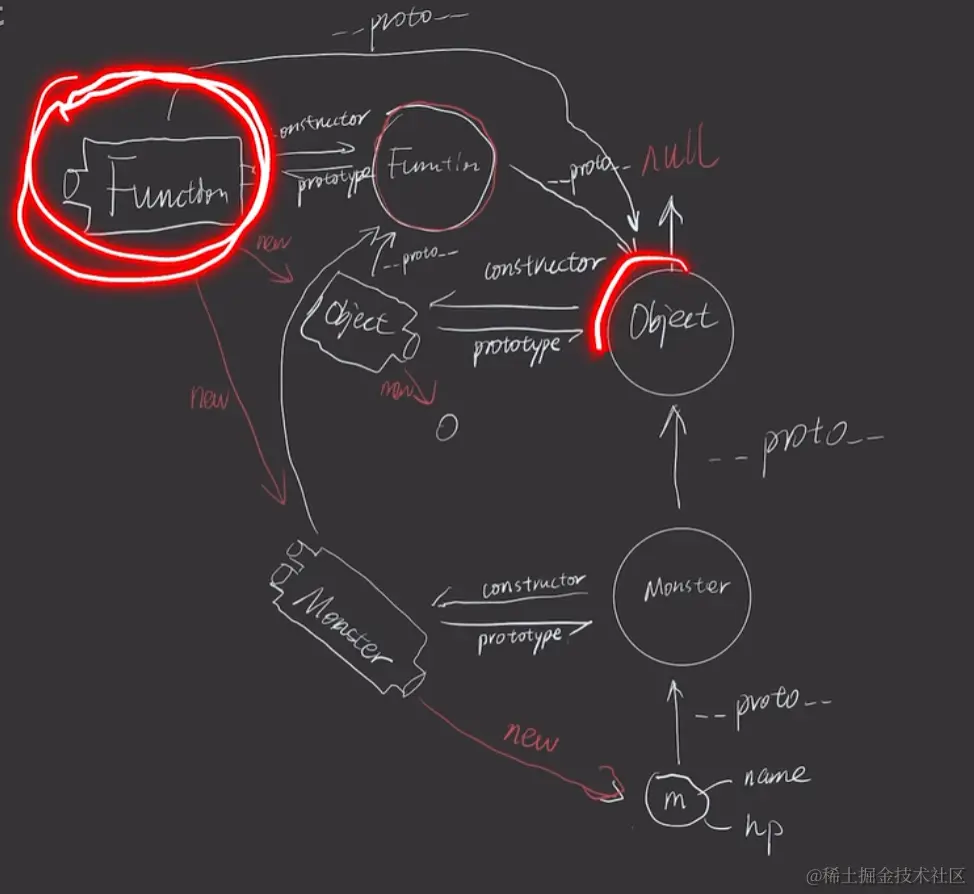 --proto--
constructor
Function
Function
prototype
--proto--
null
new
--proto--
constructor
Object
Object
prototype
new
new
O
--proto--
constructor
Monster
Monster
prototype
--proto--
new
name
m
hp
@稀土掘金技术社区